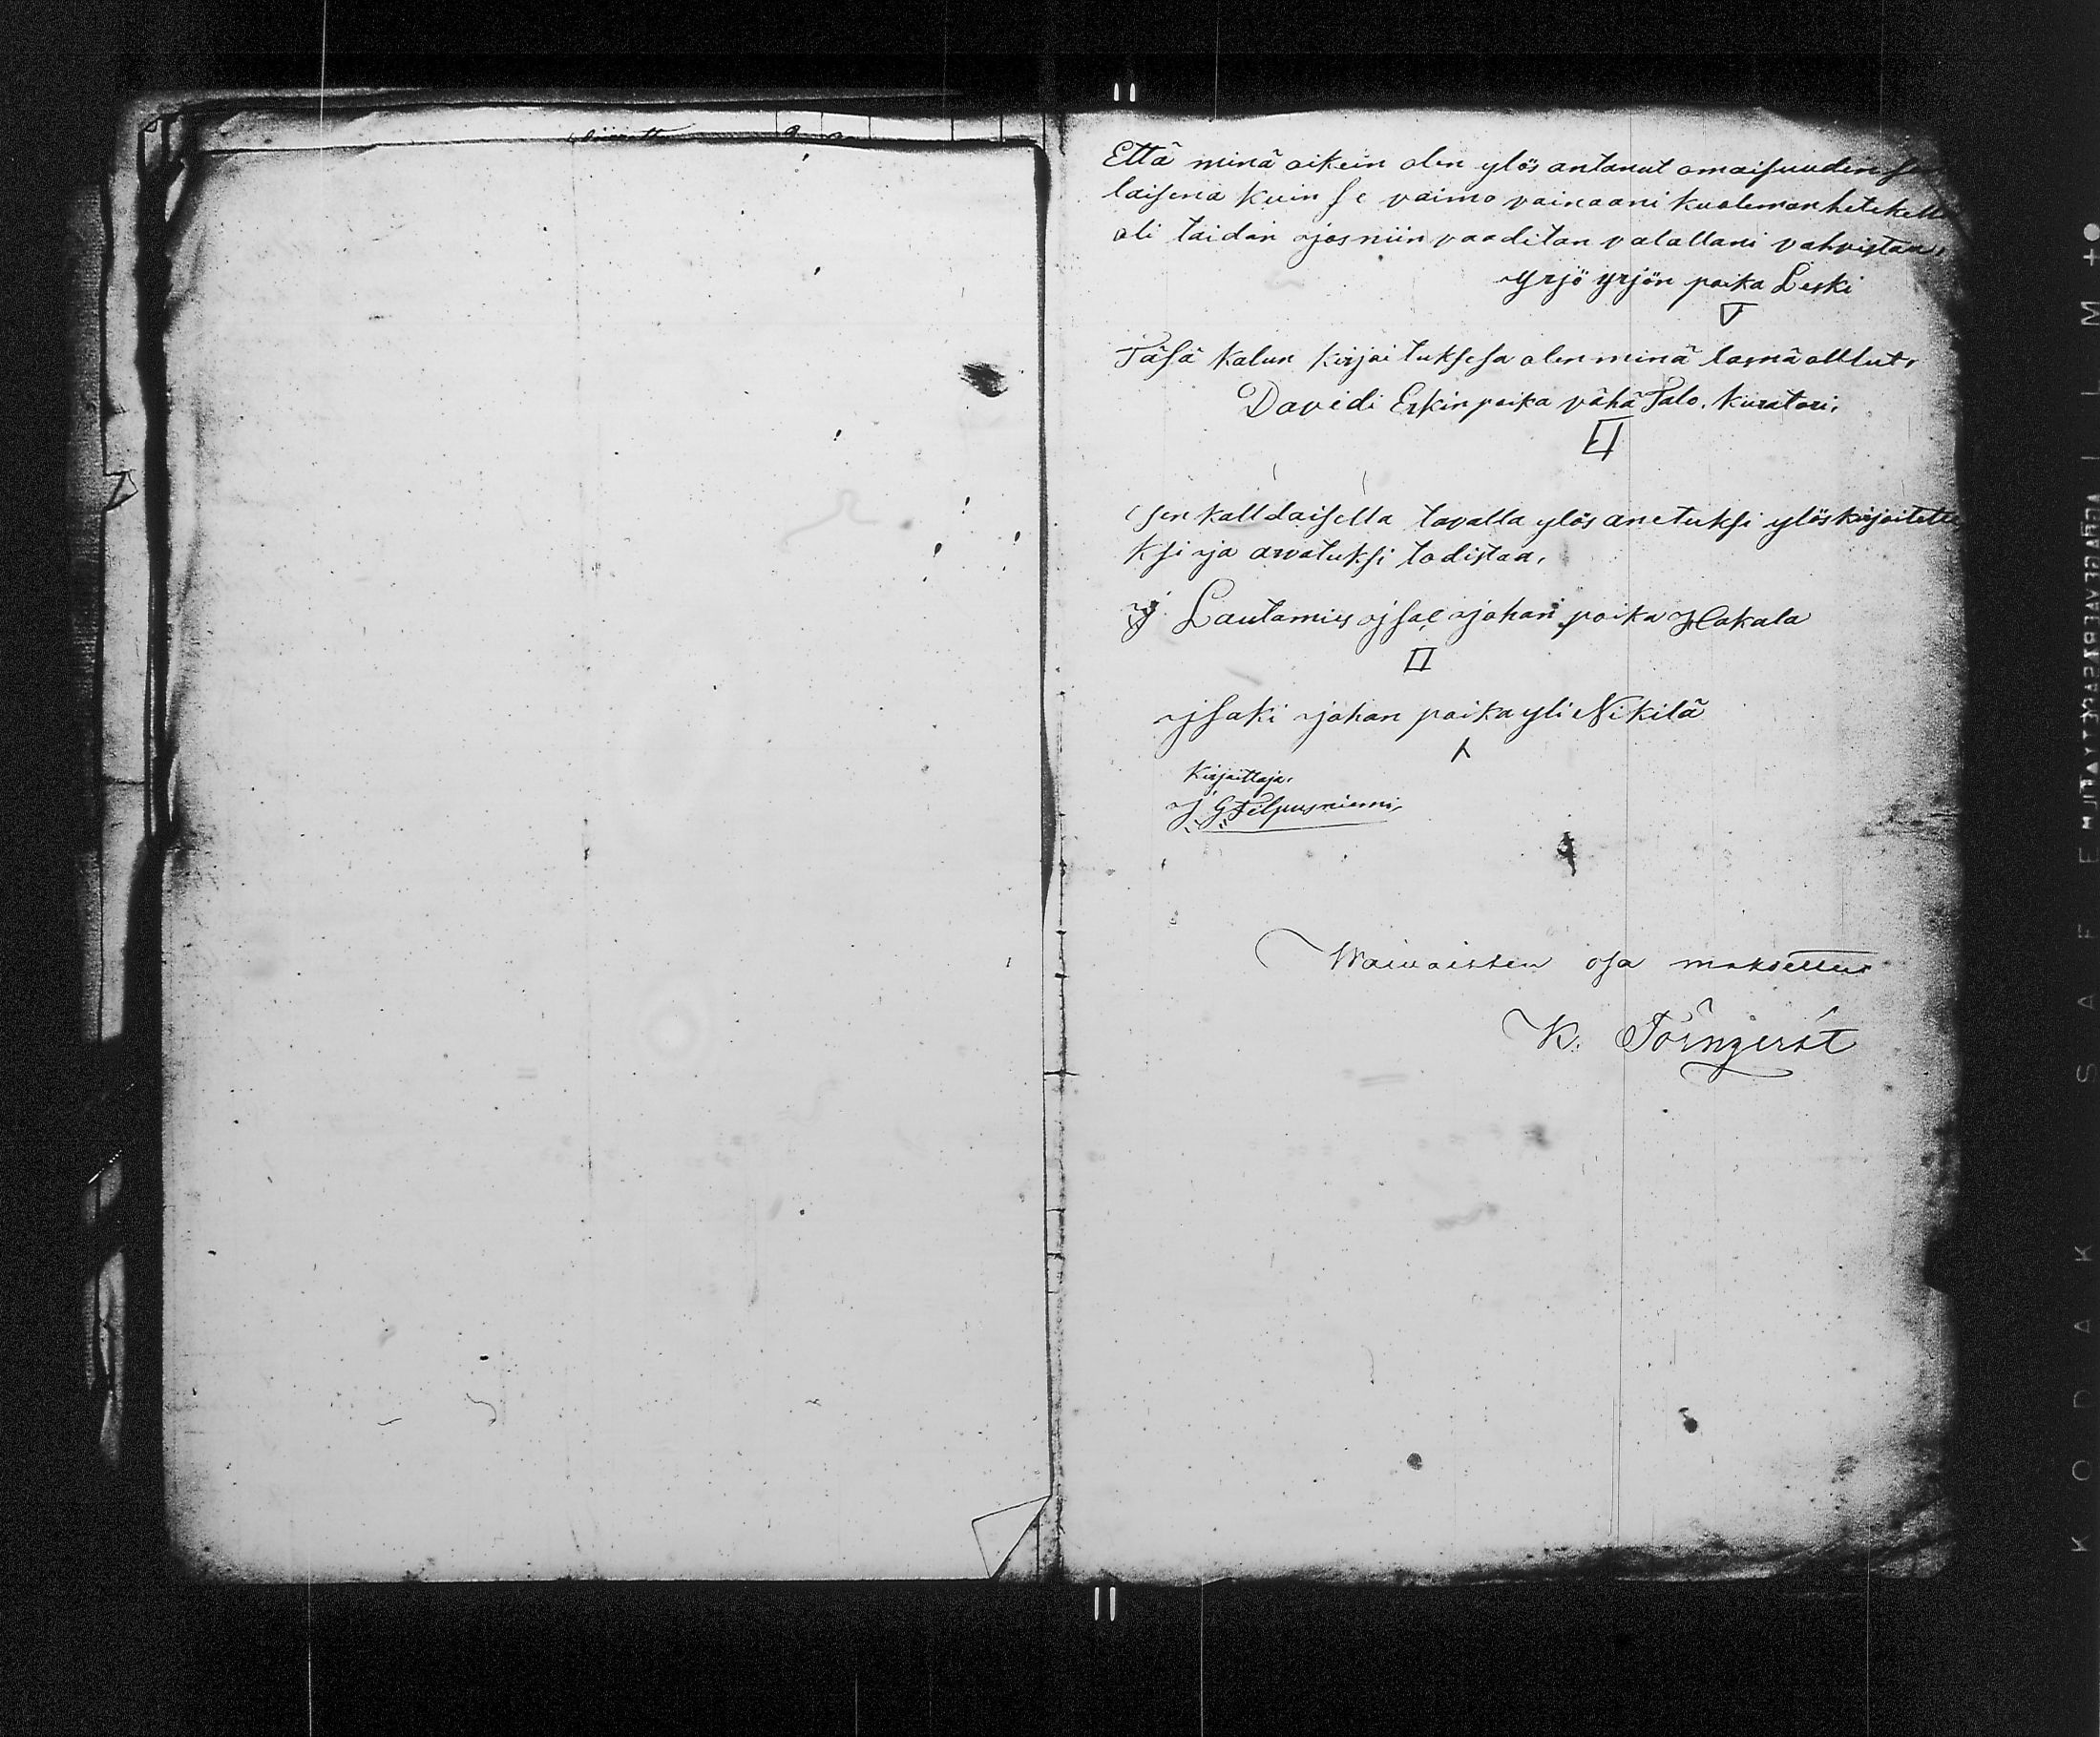 Siirrettu
Että minä oikein olen ylös antanut omaisuuden se
laisena kuin se vaimo vainaani kuoleman hetekellä
oli taidan jos niin vaaditan valallani vahvistaa,
Yrjö yrjön poika Leski
Täsä kalun kirjoituksesa olen minä läsnä olllut,
Davidi Erkin poika vähä Talo. kuratori,
sen kalldaisella tavalla ylös anetuksi ylöskirjoitetu
ksi ja arvatuksi todistaa,
Lautamies jsac johan poika Hakala
jsaki johan poika yli Nikilä
Kirjoittaja.
J. G Filpusniemi,
Waivaisten osa maksettu
K. Törnqvist
KODAK SAFETY FILM